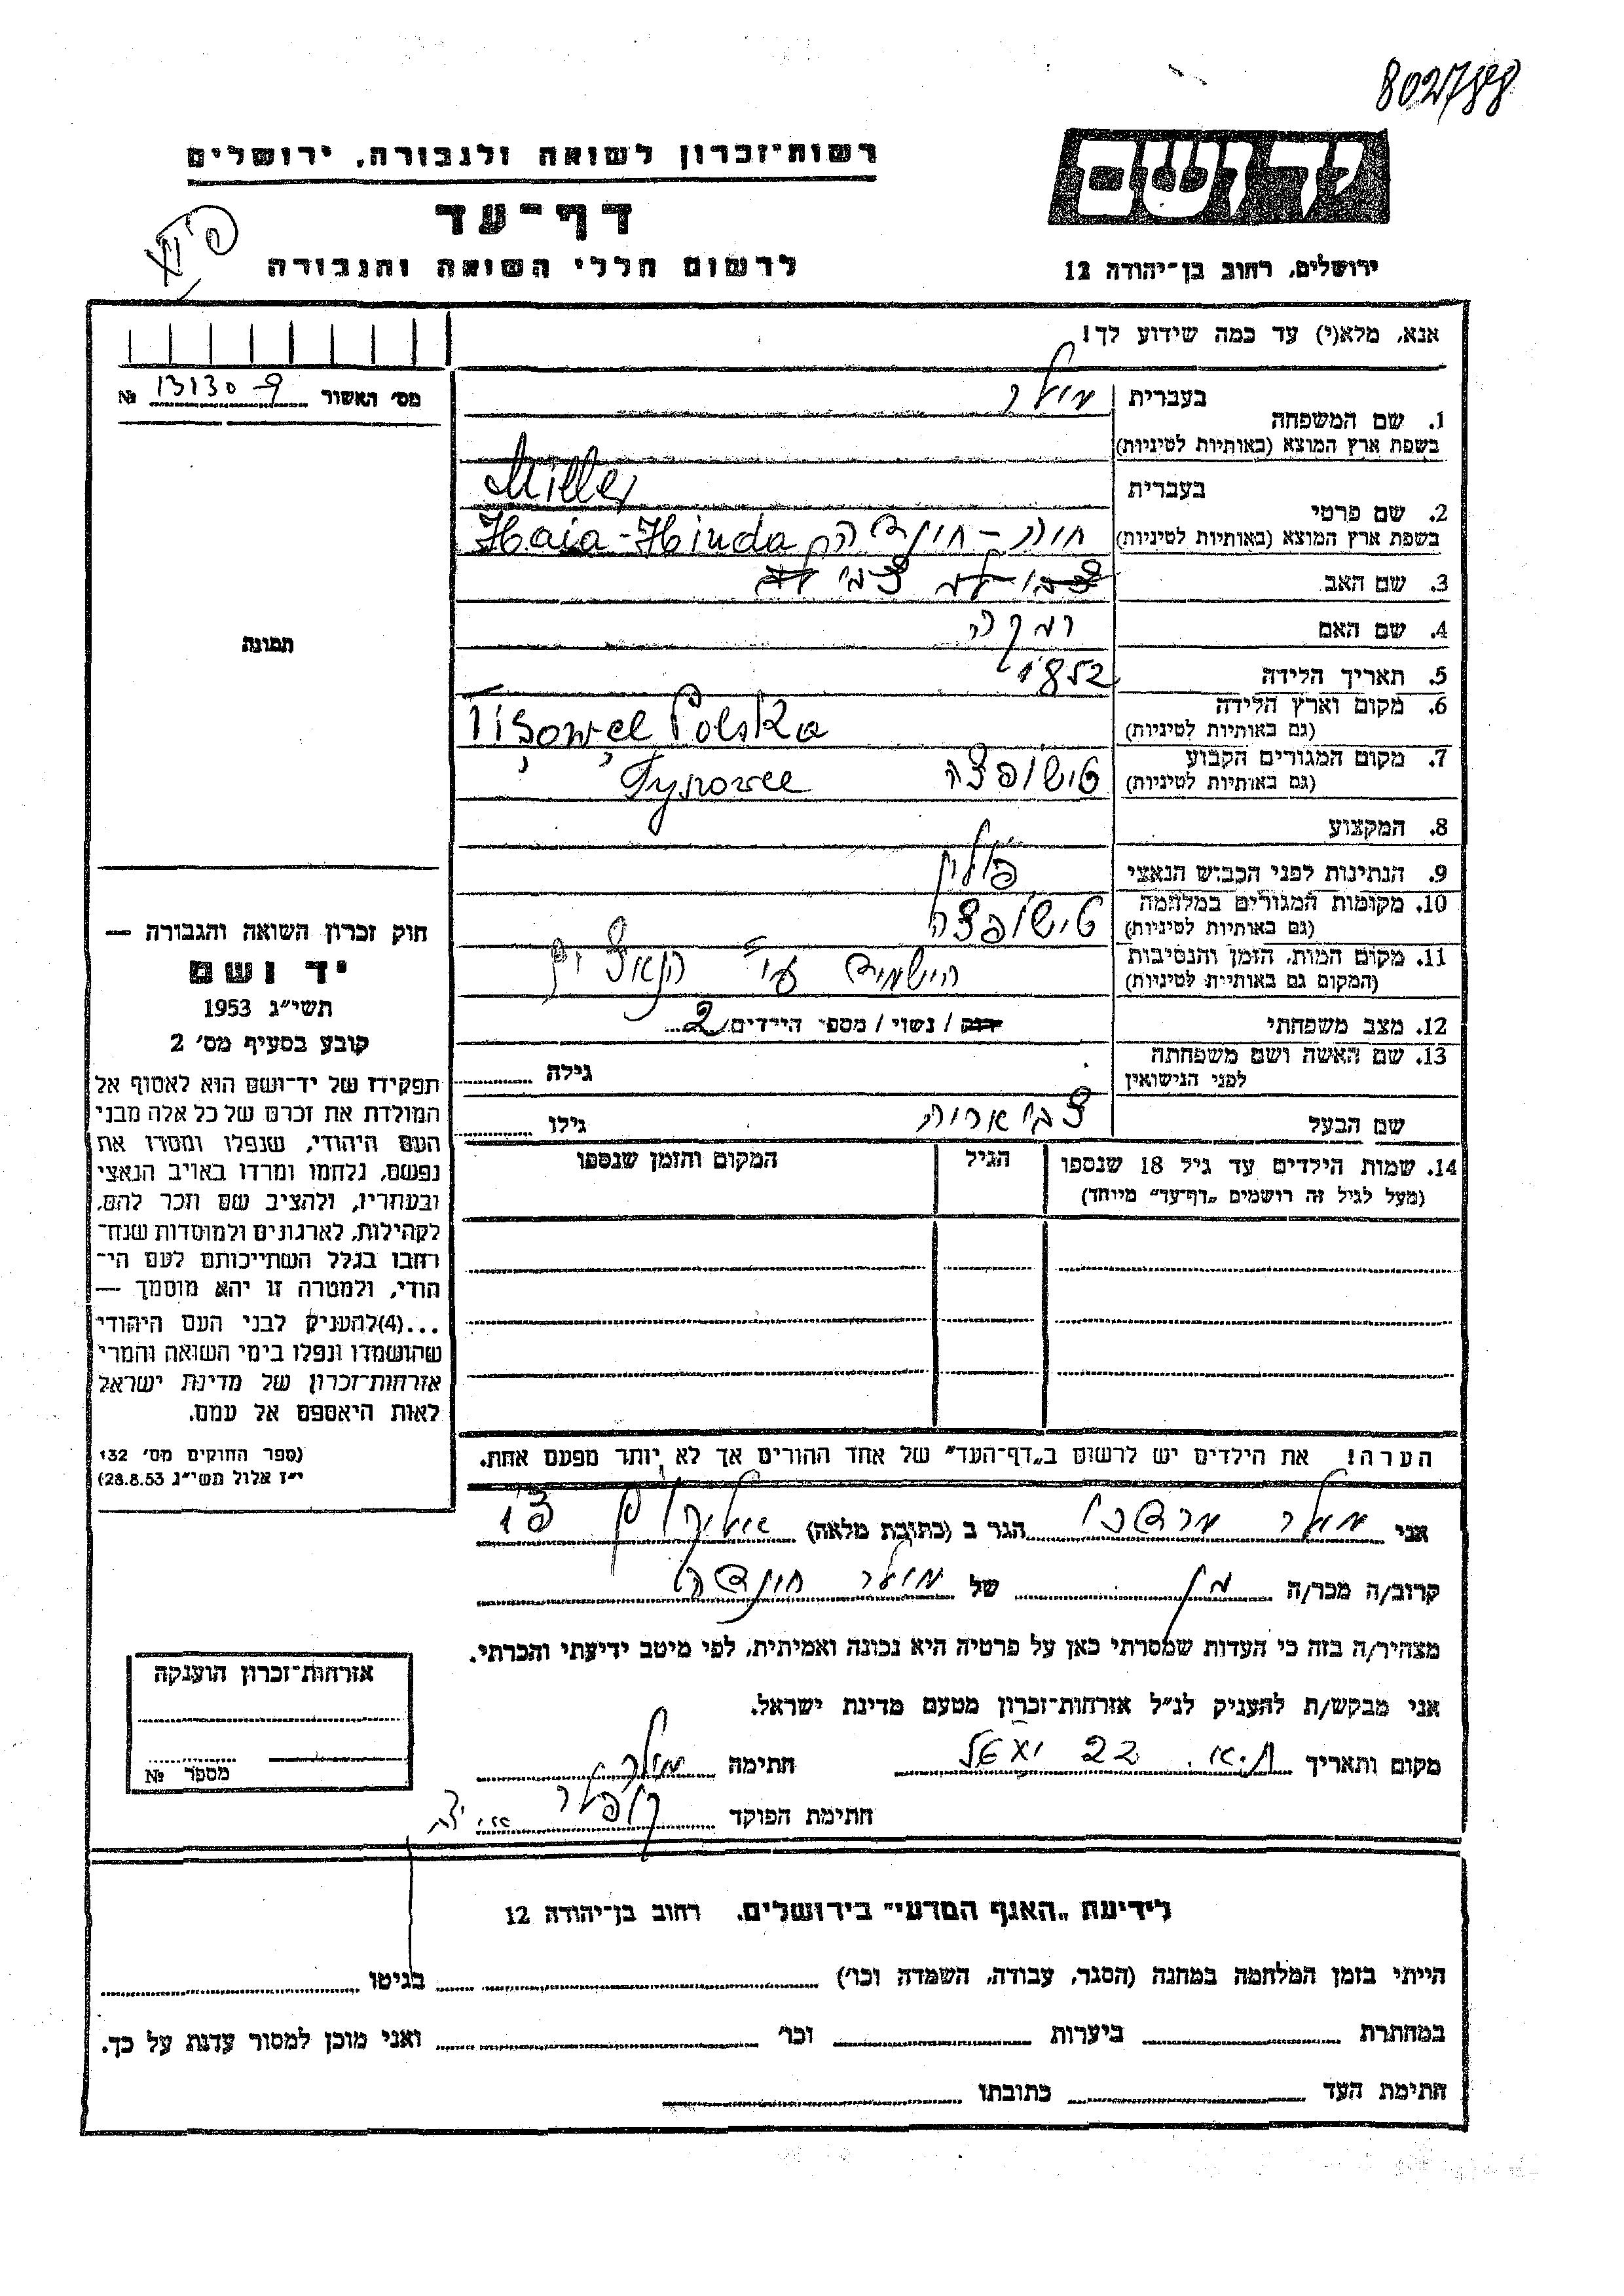 8027788
רשות־זכרון לשואה ולגבורה, ירושלים
יד ושם
דף־עד
לרשום חללי השואה והגבורה
ירושלים, רחוב בן־יהודה 12
אנא, מלא(י) עד כמה שידוע לך!
מס׳ האשור 13130 №
1. שם המשפחה
בעברית מילר
בשפת ארץ המוצא (באותיות לטיניות)
Miller
2. שם פרטי
בעברית
בשפת ארץ המוצא (באותיות לטיניות) חיה - הינדה Haia-Hinda
3. שם האב
4. שם האם רבקה
5. תאריך הלידה 1852
6. מקום וארץ הלידה
(גם באותיות לטיניות) Tisowel Polska
7. מקום המגורים הקבוע
(גם באותיות לטיניות) טישופצה Tysowce
8. המקצוע
9. הנתינות לפני הכבוש הנאצי פולין
10. מקומות המגורים במלחמה
(גם באותיות לטיניות) טישופצה
11. מקום המות, הזמן והנסיבות
(המקום גם באותיות לטיניות) הושמדה ע״י הנאצים
12. מצב משפחתי רוק / נשוי / מספר הילדים 2
13. שם האשה ושם משפחתה
לפני הנישואין
גילה
שם הבעל צבי אריה גילו
14. שמות הילדים עד גיל 18 שנספו הגיל המקום והזמן שנספו
(מעל לגיל זה רושמים „דף־עד״ מיוחד)
הערה! את הילדים יש לרשום ב„דף־העד״ של אחד ההורים אך לא יותר מפעם אחת.
תמונה
חוק זכרון השואה והגבורה —
יד ושם
תשי״ג 1953
קובע בסעיף מס׳ 2
תפקידו של יד־ושם הוא לאסוף אל
המולדת את זכרם של כל אלה מבני
העם היהודי, שנפלו ומסרו את
נפשם, נלחמו ומרדו באויב הנאצי
ובעוזריו, ולהציב שם וזכר להם,
לקהילות, לארגונים ולמוסדות שנח־
רבו בגלל השתייכותם לעם הי־
הודי, ולמטרה זו יהא מוסמך —
...(4)להעניק לבני העם היהודי
שהושמדו ונפלו בימי השואה והמרי
אזרחות־זכרון של מדינת ישראל
לאות היאספם אל עמם.
(ספר החוקים מס׳ 132
י״ז אלול תשי״ג 28.8.53)
אני מילר מרדכי הגר ב (כתובת מלאה) 13
קרוב/ה מכר/ה בן של מילר הינדה
מצהיר/ה בזה כי העדות שמסרתי כאן על פרטיה היא נכונה ואמיתית, לפי מיטב ידיעתי והכרתי.
אני מבקש/ת להעניק לנ״ל אזרחות־זכרון מטעם מדינת ישראל.
מקום ותאריך ת״א. 22 חתימה מילר
חתימת הפוקד
אזרחות־זכרון הוענקה
מספר №
לידיעת „האגף המדעי״ בירושלים, רחוב בן־יהודה 12
הייתי בזמן המלחמה במחנה (הסגר, עבודה, השמדה וכו׳) בגיטו
במחתרת ביערות וכו׳ ואני מוכן למסור עדות על כך.
חתימת העד כתובתו